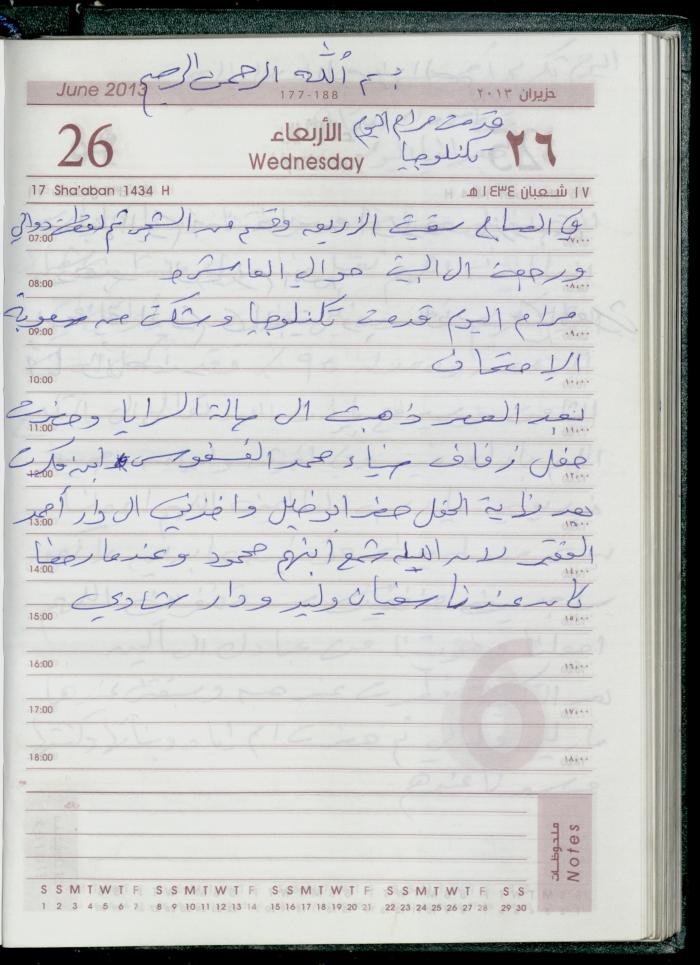 بسم الله الرحمن الرحيم
June 2013 177-188 حزيران ٢٠١٣
قدمت مرام اليوم
تكنلوجيا
26 الأربعاء ٢٦
Wednesday
17 Sha'aban 1434 H ١٧ شعبان ١٤٣٤ هـ
في الصباح سقيت الزريعه وقسم من الشجر ثم لقطت دوالي
07:00 ٠٧:٠٠
ورجعت الى البيت حوالي العاشره
08:00 ٠٨:٠٠
مرام اليوم قدمت تكنلوجيا وشكت من صعوبة
09:00 ٠٩:٠٠
الإمتحان
10:00 ١٠:٠٠
بعد العصر ذهبت الى صالة السرايا وحضرت
11:00 ١١:٠٠
حفل زفاف ضياء محمد الفسفوس ابن
12:00 ١٢:٠٠
بعد نهاية الحفل حضر ابو خليل واخذني الى دار أحمد
13:00 ١٣:٠٠
لان الليله شمع ابنهم محمود وعندما رجعنا
14:00 ١٤:٠٠
كان عندنا سفيان وليد ودار شادي
15:00 ١٥:٠٠
16:00 ١٦:٠٠
17:00 ١٧:٠٠
18:00 ١٨:٠٠
6
ملحوظات
Notes
S S M T W T F S S M T W T F S S M T W T F S S M T W T F S S
1 2 3 4 5 6 7 8 9 10 11 12 13 14 15 16 17 18 19 20 21 22 23 24 25 26 27 28 29 30